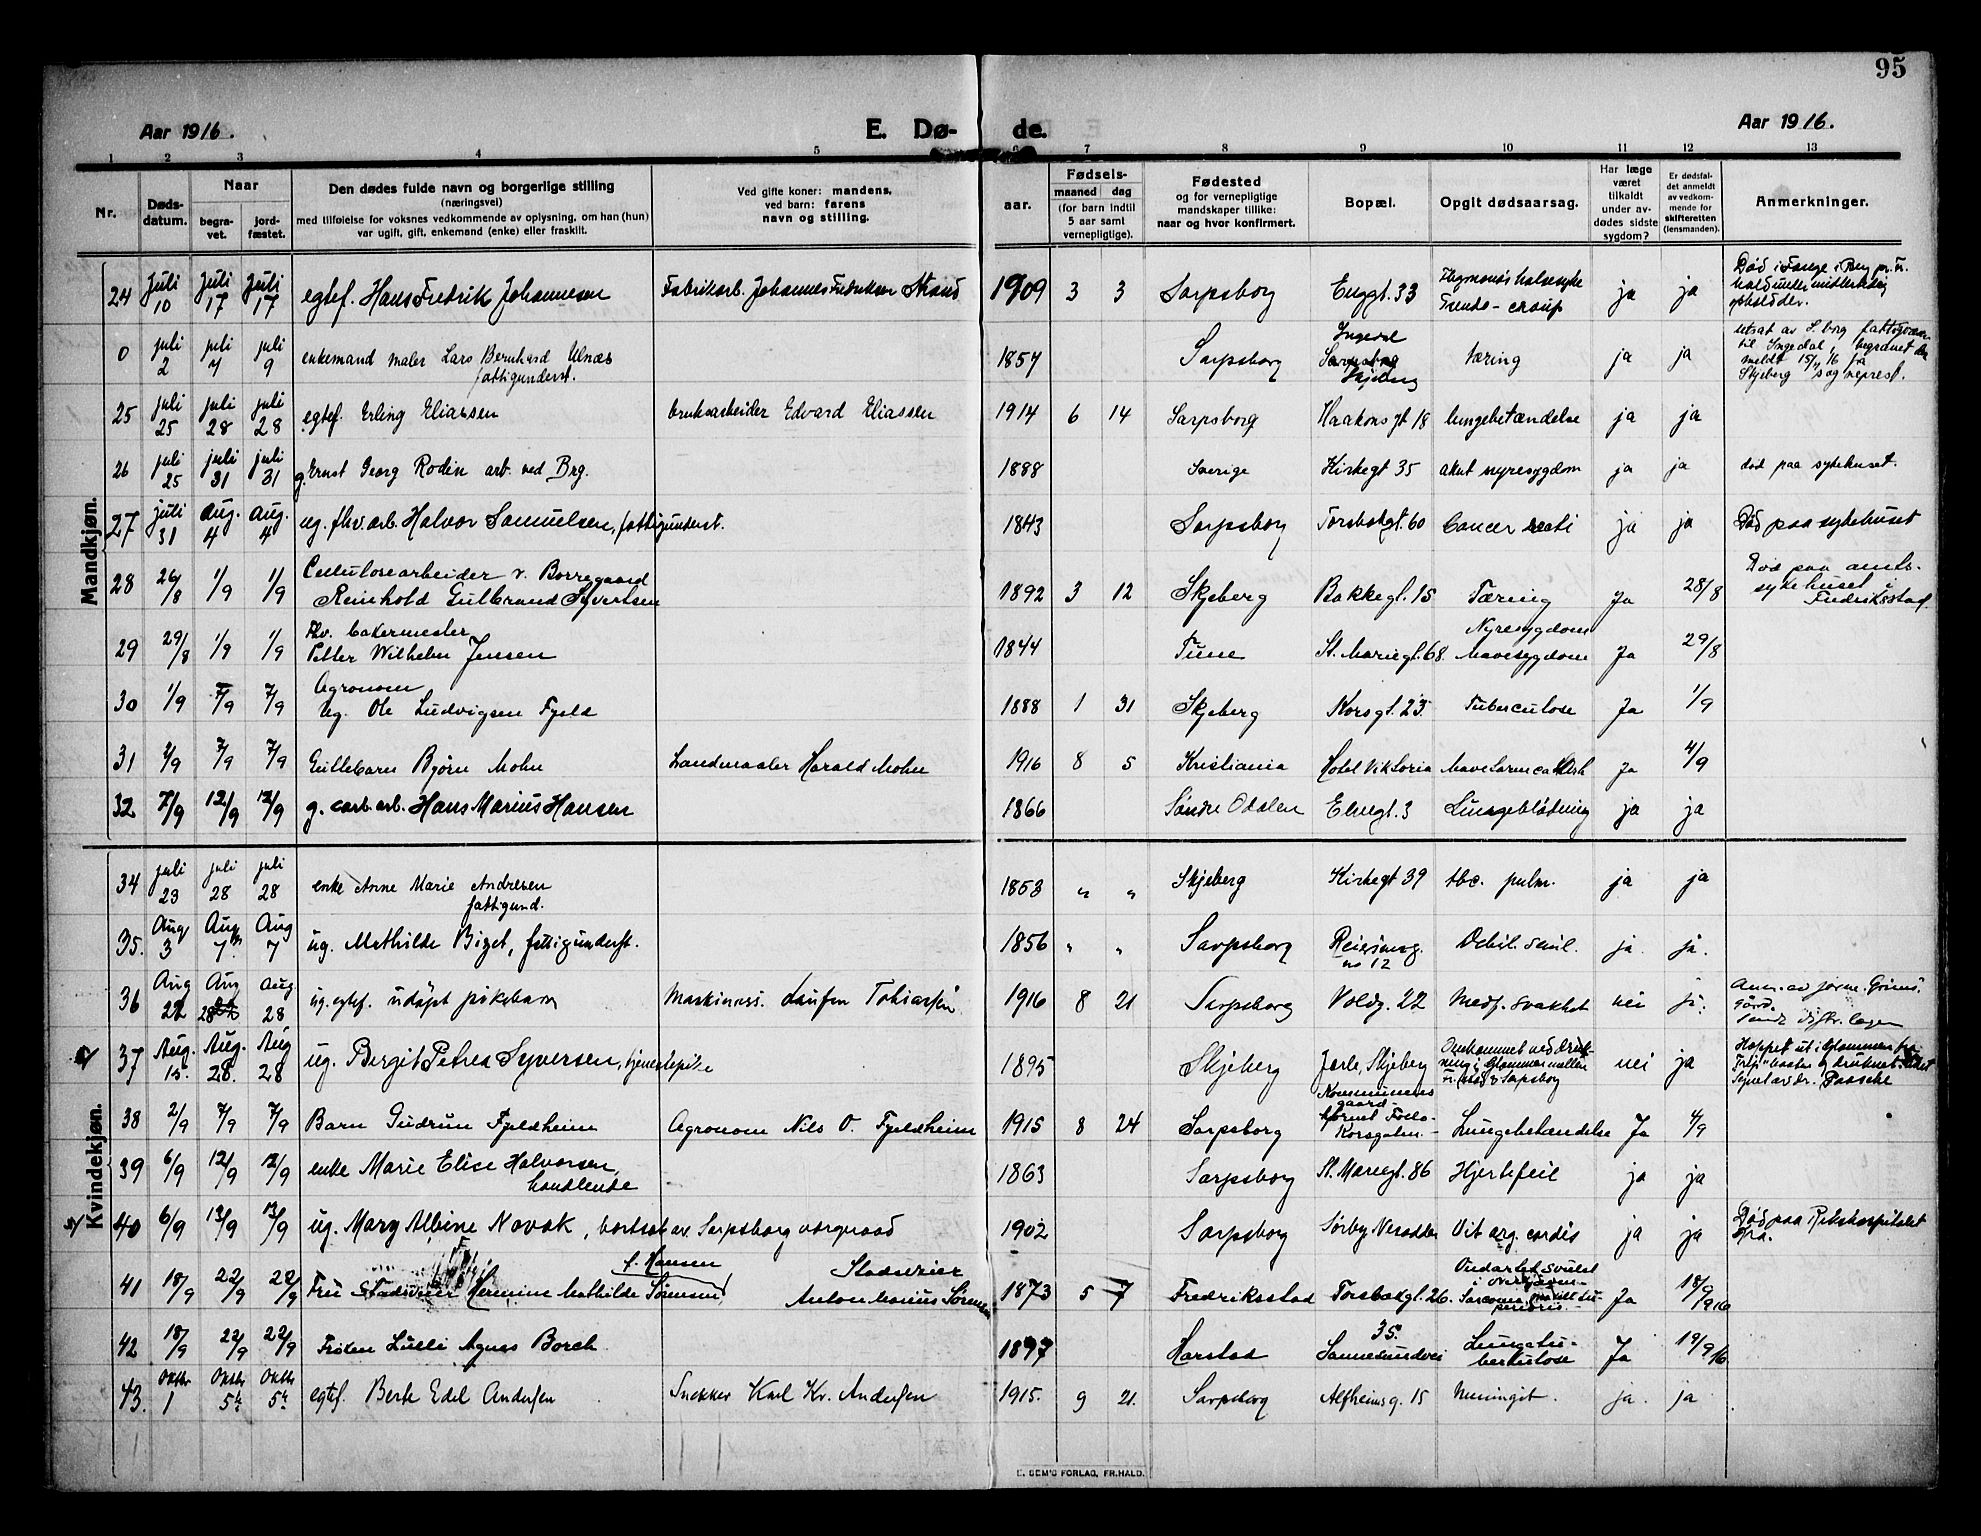 95
Aar 1916.
E. Dø- de.
Aar 1916.
1 2 3 4 5 6 7 8 9 10 11 12 13
Nr.
Døds-
datum.
Naar
begra-
vet.
jord-
fæstet.
Den dødes fulde navn og borgerlige stilling
(næringsvei)
med tilføielse for voksnes vedkommende av oplysning, om han (hun)
var ugift, gift, enkemand (enke) eller fraskilt.
Ved gifte koner: mandens,
ved barn: farens
navn og stilling.
Fødsels-
aar.
maaned dag
(for barn indtil
5 aar samt
vernepligtige).
Fødested
og for vernepligtige
mandskaper tillike:
naar og hvor konfirmert.
Bopæl.
Opgit dødsaarsag.
Har læge
været
tilkaldt
under av-
dødes sidste
sygdom?
Er dødsfal-
det anmeldt
av vedkom-
mende for
skifteretten
(lensmanden).
Anmerkninger.
Mandkjøn.
24 Juli 10 Juli 17 Juli 17 egtef. Hans Fredrik Johannesen Fabrikarb. Johannes Fredriksen Strand 1909 3 3 Sarpsborg Enggt. 33 ja ja
0 juli 2 juli 7 juli 9 enkemand maler Lars Bernhard Ulnæs
fattigunderst. 1854 Sarpsborg Ingedal
Skjeberg tæring ja ja utsat av S.borg
til Ingedal, begravet der
meldt 15/11 16 fra
Skjeberg sogneprest.
25 juli 25 juli 28 juli 28 egtef. Erling Eliassen bruksarbeider Edvard Eliassen 1914 6 14 Sarpsborg Haakons gt 18 lungebetændelse ja ja
26 juli 25 juli 31 juli 31 g. Ernst Georg Rodin arb. ved Brg. 1888 Sverige Kirkegt 35 akut nyresygdom ja ja død paa sykehuset.
27 juli 31 Aug. 4 Aug. 4 ug. fhv. arb. Halvor Samuelsen, fattigunderst. 1843 Sarpsborg Torsbækgt. 60 Cancer recti ja ja Død paa sykehuset
28 26/8 1/9 1/9 Cellulosearbeider v. Borregaard
Reinhold Gulbrand Syvertsen 1892 3 12 Skjeberg Bakkegt. 15 Tæring Ja 28/8 Død paa amts-
sykehuset i
Fredriksstad.
29 29/8 1/9 1/9 Fhv. bakermester
Petter Wilhelm Jensen 1844 Tune St. Mariegt. 68. Nyresygdom
Mavesygdom Ja 29/8
30 1/9 7/9 7/9 Agronom
Ug. Ole Ludvigsen Fjeld 1888 1 31 Skjeberg Korsgt. 23. Tuberculose Ja 1/9
31 2/9 7/9 7/9 Guttebarn Bjørn Mohn Landmaaler Harald Mohn 1916 8 5 Kristiania Hotel Viktoria Ja 4/9
32 7/9 12/9 12/9 g. carb. arb. Hans Marius Hansen 1866 Søndre Odalen Elvegt. 3 Lungeblødning ja ja
Kvindekjøn.
34 juli 23 juli 28 juli 28 enke Anne Marie Andresen
fattigund. 1853 " " Skjeberg Kirkegt 39 tbc. pulm. ja ja
35. Aug 3 Aug 7. Aug 7 ug. Mathilde Bizet, fattigunderst. 1856 " " Sarpsborg
no 12 Debil. senil. ja. ja.
36 Aug 22 Aug 28 Aug. 28 ug. egtef. udøpt pikebarn Maskinass. Laufen Tobiassen 1916 8 21 Sarpsborg Voldg. 22 Medf. svakhet nei ja. Anm. av jorm.
37 Aug. 15. Aug. 28. Aug 28 ug. Birgit Petrea Syversen, tjenestepike 1895 Skjeberg Jarle, Skjeberg Omkommet ved druk-
ning i Glommen mellem
Sarpsborg nei ja Hoppet ut i Glommen fra
38 2/9 7/9 7/9 Barn Gudrun Fjeldheim Agronom Nils O. Fjeldheim 1915 8 24 Sarpsborg Kommunens
gaard
hjørnet
Korsgaten.- Lungebetændelse Ja 4/9
39 6/9 12/9 12/9 enke Marie Elise Halvorsen,
handlende 1863 Sarpsborg St. Mariegt. 86 Hjertefeil ja ja
40 6/9 13/9 13/9 ug. Mary Albine Novak, bortsat av Sarpsborg værgeraad 1902 Sarpsborg Sørby Nesodden Vit. org. cordis ja ja Død paa Rikshospitalet
Kra.
41 18/9 22/9 22/9 f. Hansen
Fru Hermine Mathilde Sørensen Stadsveier
Anton Marius Sørensen 1873 5 7 Fredriksstad Torsbækgt. 26. Ondartet svulst
Ja 18/9 916
42 18/9 22/9 22/9 Frøken Lulli Agnes Borch 1897 Harstad 35.
Sannesundvei Lungetu-
berkulose Ja 19/9 16
43. Oktbr 1 Oktbr 5te Oktbr 5te egtef. Berte Edel Andersen Snekker Karl Kr. Andersen 1915. 9 21. Sarpsborg Alfheimsg. 15 Meningit. ja. ja
E. SEM'S FORLAG, FR.HALD.